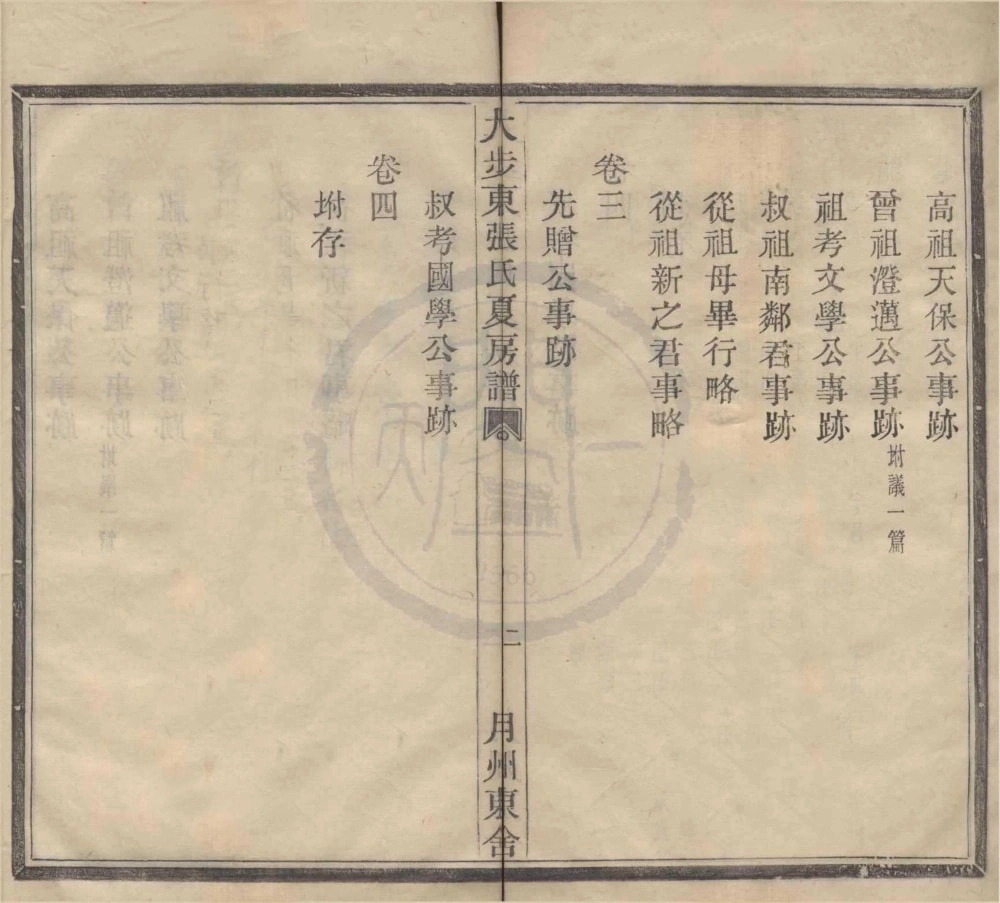 高祖天保公事跡
曾祖澄邁公事跡 坿議一篇
祖考文學公事跡
叔祖南鄰君事跡
從祖母畢行略
從祖新之君事略
卷三
先贈公事跡
大步東張氏夏房譜
二
月州東舍
叔考國學公事跡
卷四
坿存